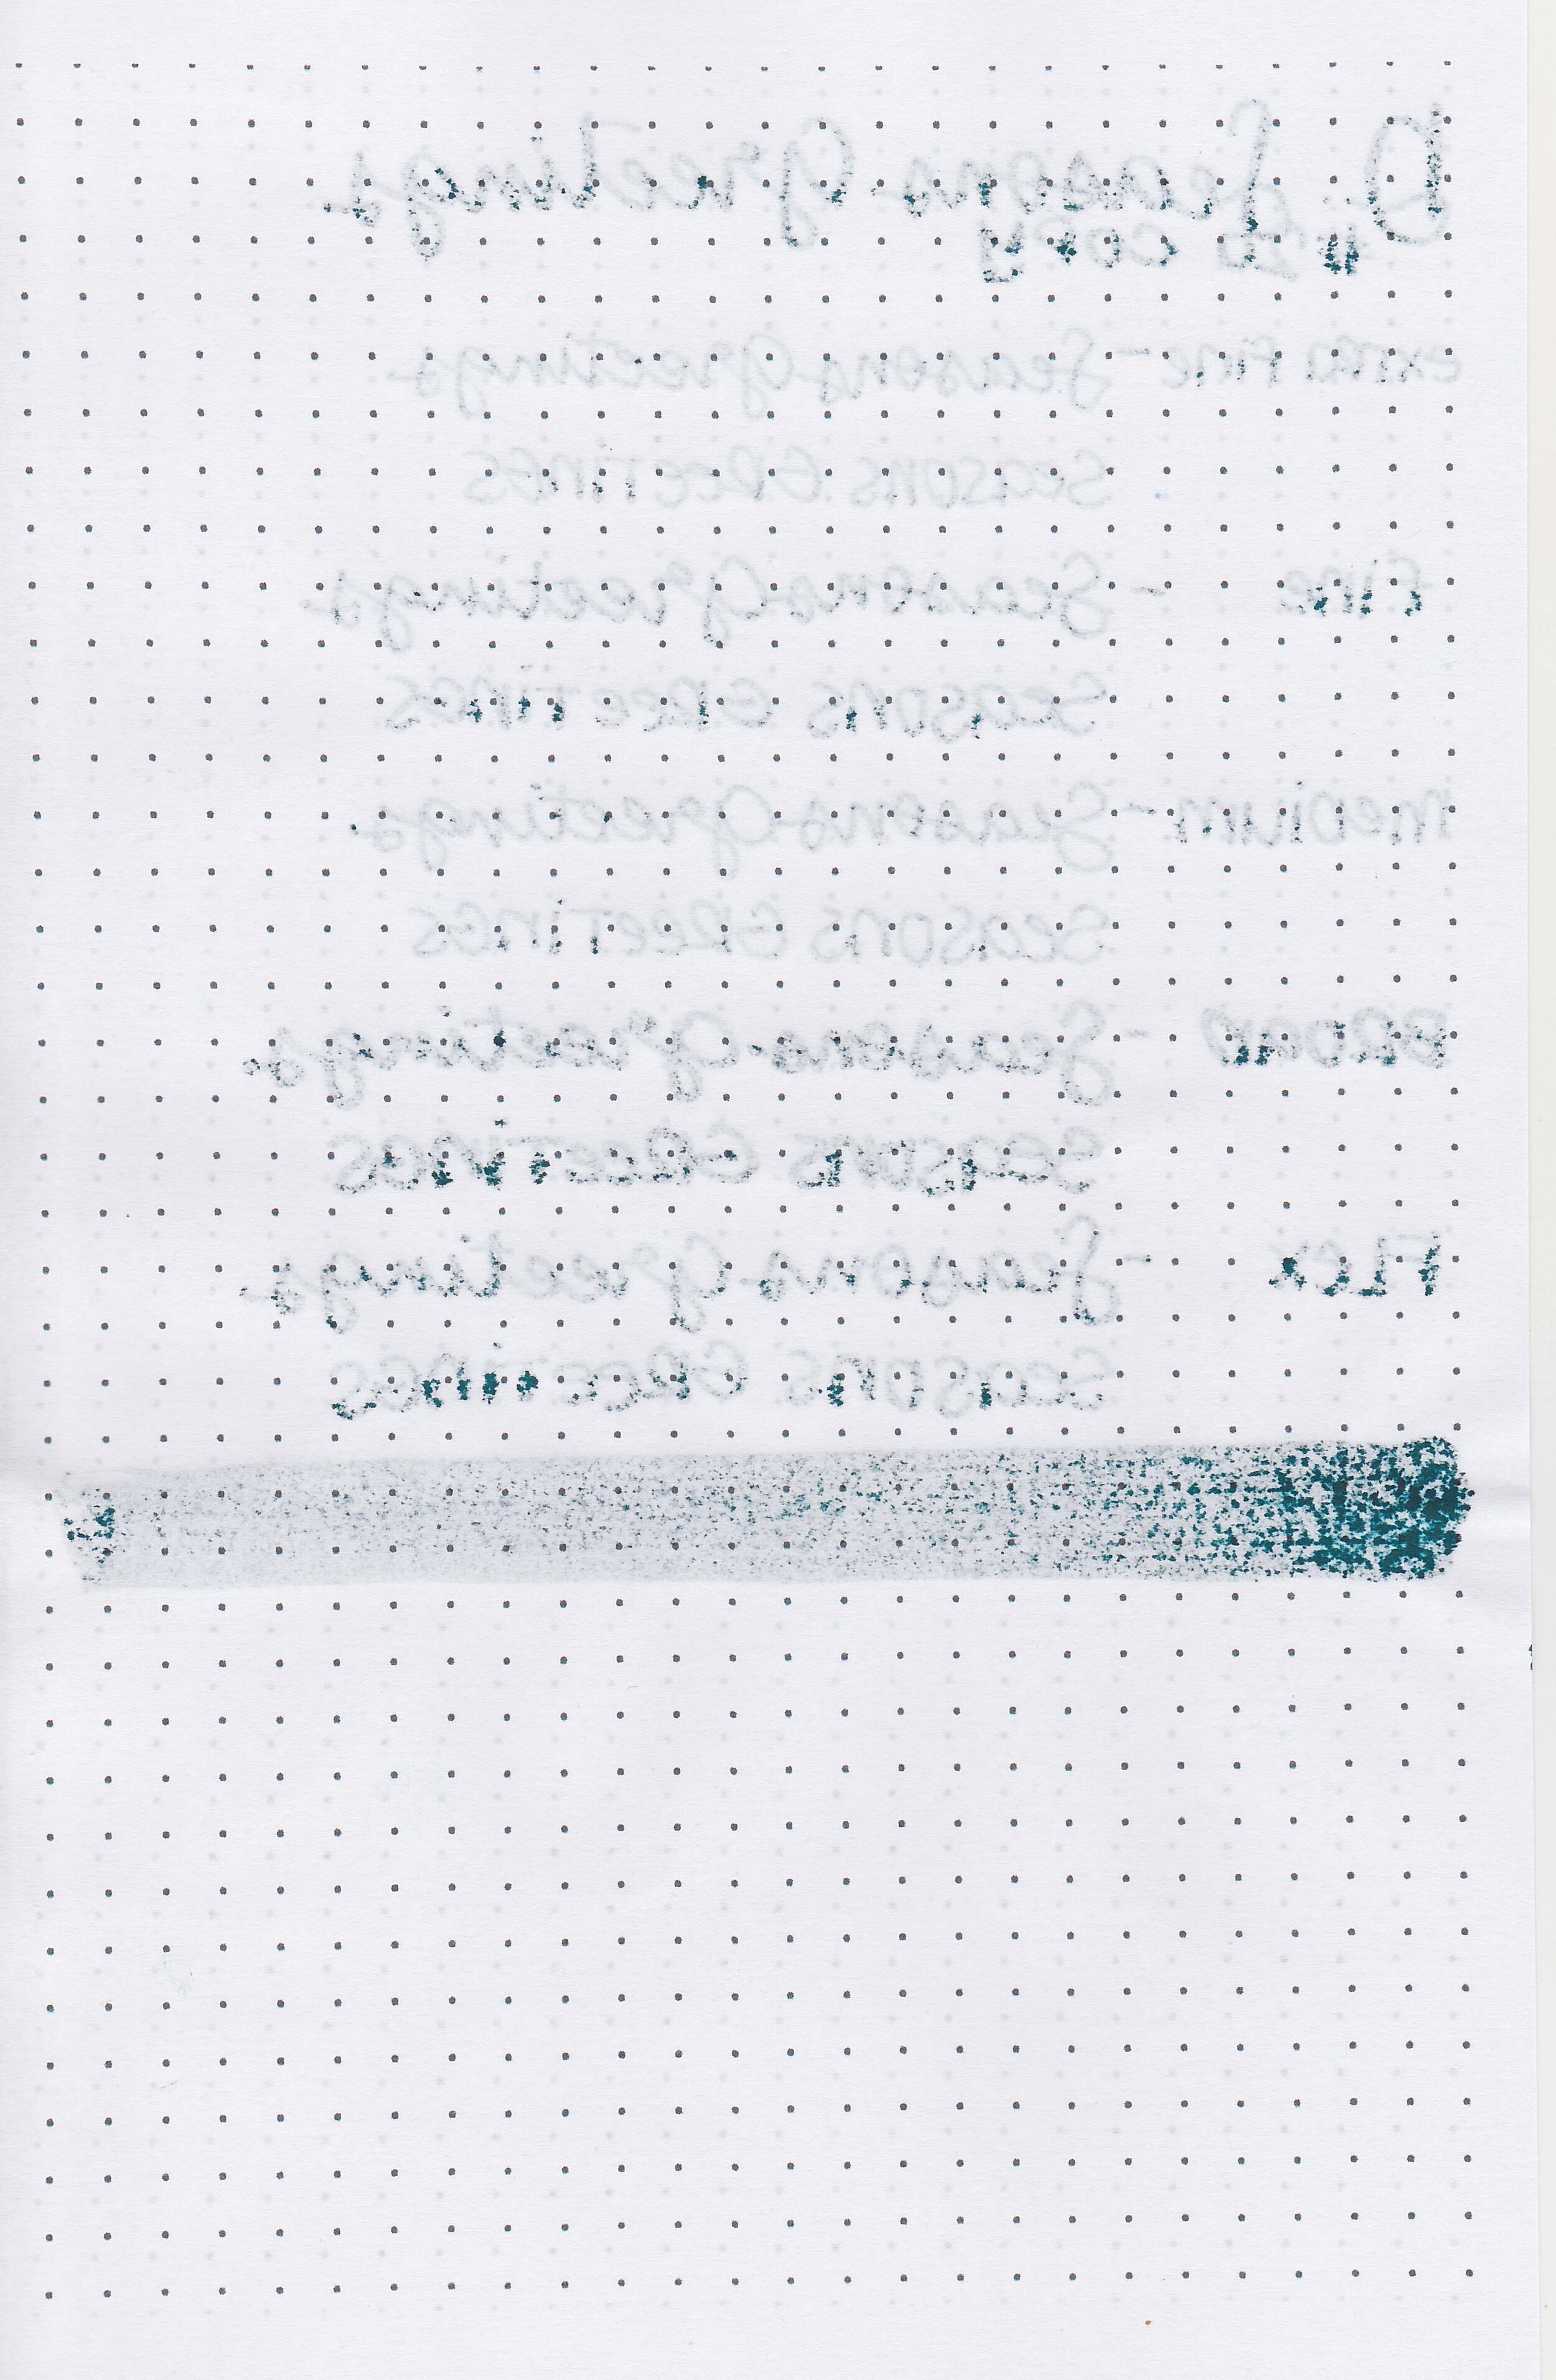 D. Seasons Greetings
copy
extra Fine - Seasons Greetings
Seasons Greetings
Fine - Seasons Greetings
Seasons Greetings
Medium - Seasons Greetings
Seasons Greetings
Broad - Seasons Greetings
Seasons Greetings
Flex - Seasons Greetings
Seasons Greetings